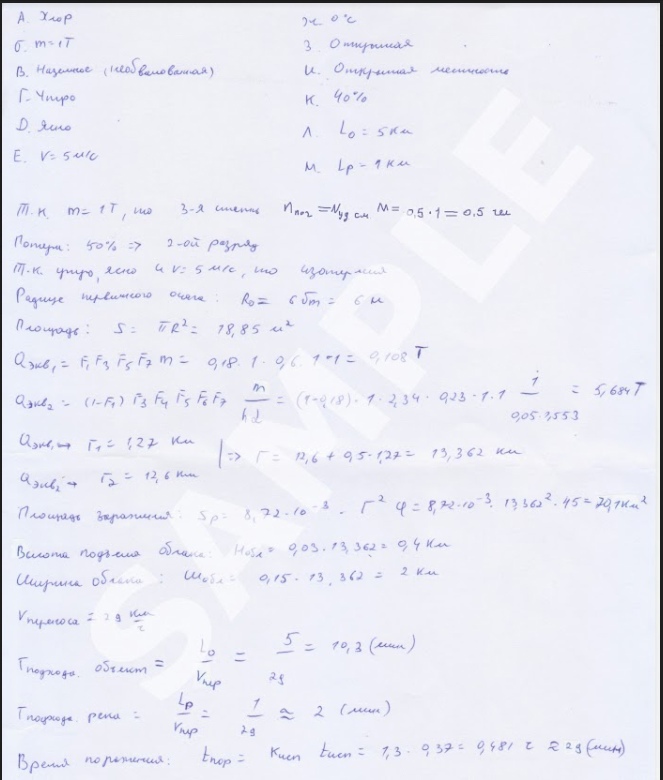 А. Хлор
Б. m = 1Т
В. Наземное (необвалованная)
Г. Утро
Д. Ясно
Е. V = 5 м/с
Ж 0°С
З. Открытая
И. Открытая местность
К. 40%
Л. L₀ = 5 км
М. Lр = 1 км
Т.к. m = 1Т, то 3-я степень nпог = Nуд см M = 0,5 · 1 = 0,5 чел
Потери: 50% => 2-ой разряд
Т.к. утро, ясно и V = 5 м/с, то изотермия
Радиус первичного очага: R₀ = 6√m = 6 м
Площадь: S = πR² = 18,85 м²
Qэкв₁ = F₁ F₃ F₅ F₇ m = 0,18 · 1 · 0,6 · 1 · 1 = 0,108 Т
Qэкв₂ = (1-F₁) F₃ F₄ F₅ F₆ F₇ m/hd = (1-0,18) · 1 · 2,34 · 0,23 · 1 · 1 1/0,05·1,553 = 5,684 Т
Qэкв₁ → Г₁ = 1,27 км
Qэкв₂ → Г₂ = 12,6 км |=> Г = 12,6 + 0,5·1,27 = 13,362 км
Площадь заражения: Sр = 8,72·10⁻³ · Г² φ = 8,72·10⁻³ · 13,362² · 45 = 70,1 км²
Высота подъема облака: Hобл = 0,03 · 13,362 = 0,4 км
Ширина облака: Шобл = 0,15 · 13,362 = 2 км
Vпереноса = 29 км/ч
Тподхода. объект = L₀/Vпер = 5/29 = 10,3 (мин)
Тподхода. река = Lр/Vпер = 1/29 ≈ 2 (мин)
Время поражения: tпор = Kисп tисп = 1,3 · 0,37 = 0,481 ч ≈ 29 (мин)
SAMPLE